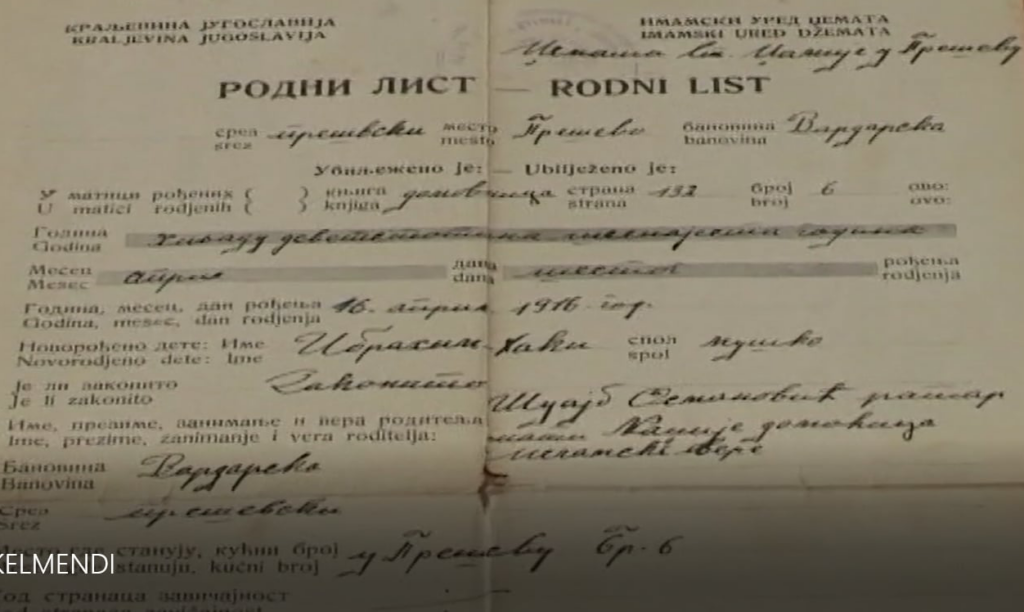 КРАЉЕВИНА ЈУГОСЛАВИЈА
KRALJEVINA JUGOSLAVIJA
ИМАМСКИ УРЕД ЏЕМАТА
IMAMSKI URED DŽEMATA
Џемата Џамије у Прешеву
РОДНИ ЛИСТ — RODNI LIST
срез прешевски место Прешево бановина Вардарска
srez mesto banovina
Убиљежено је: — Ubilježeno je:
У матици рођених ( ) књига домовница страна 132 број 6 ово:
U matici rodjenih ( ) knjiga strana broj ovo:
Година хиљаду деветстотина шеснајеста година
Godina
Месец април дана рођења
Mesec dana rodjenja
Година, месец, дан рођења 16. април 1916 год.
Godina, mesec, dan rodjenja
Новорођено дете: Име Ибрахим-Хаки спол мушко
Novorodjeno dete: Ime spol
Је ли законито Законито
Je li zakonito
Шуајб Османовић ратар
Име, презиме, занимање и вера родитеља
Ime, prezime, zanimanje i vera roditelja:
мати домаћица
исламске вере
Бановина Вардарска
Banovina
Срез прешевски
Srez
станују, кућни број у Прешеву бр. 6
stanuju, kućni broj
KELMENDI
Код странаца завичајност